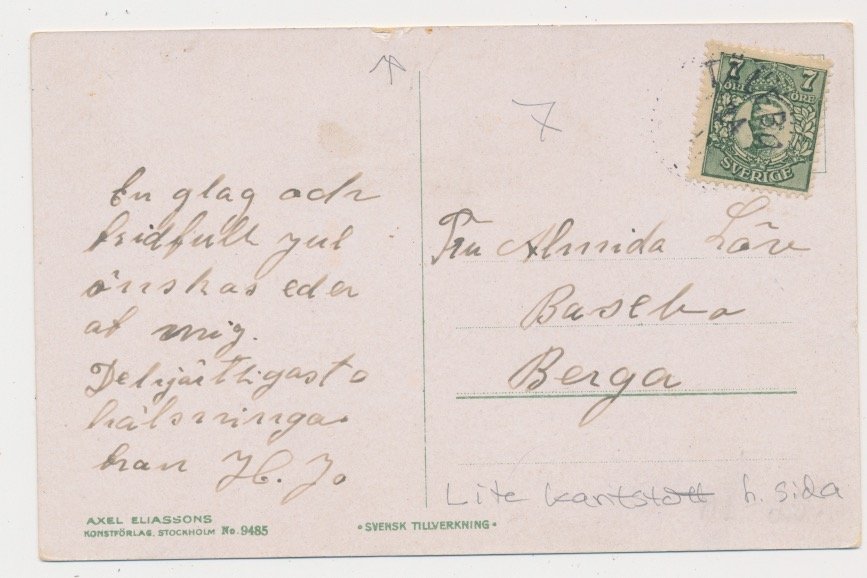 7
7
7
ÖRE ÖRE
SVERIGE
En glag och
fridfull jul
önskas eder
af mig.
Dehjärtligasto
hälsninga
fran H. Jo
Fru Almida Löv
Basebo
Berga
Lite kantstött h. sida
AXEL ELIASSONS
KONSTFÖRLAG. STOCKHOLM No. 9485
• SVENSK TILLVERKNING •